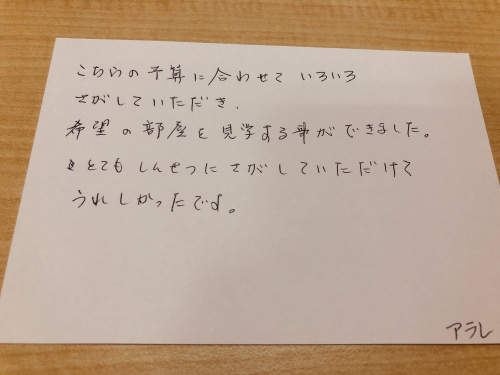 こちらの予算に合わせていろいろ
さがしていただき、
希望の部屋を見学する事ができました。
とてもしんせつにさがしていただけて
うれしかったです。
アラレ